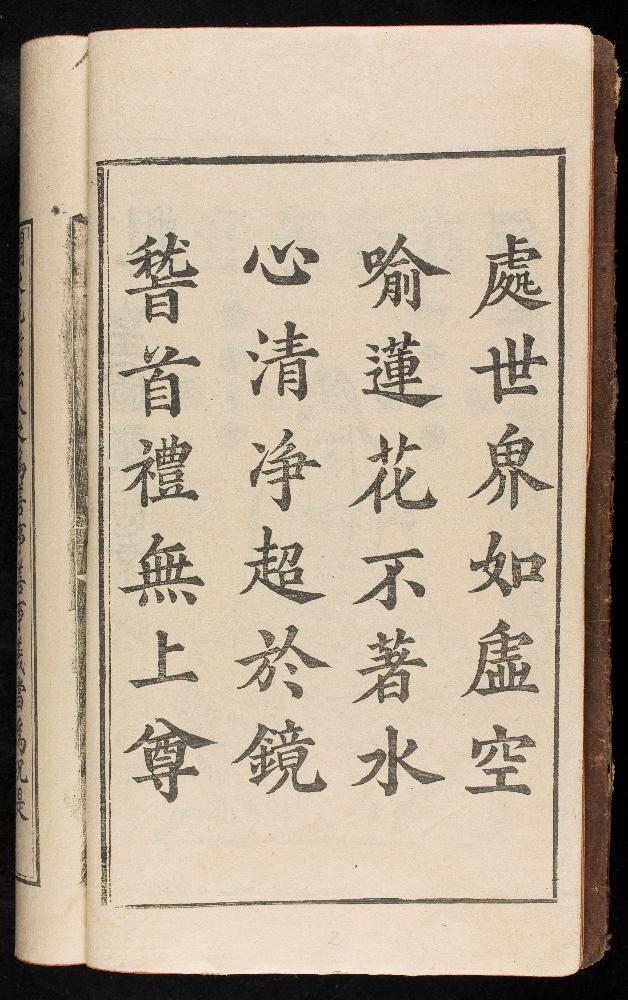 處世界如虛空
喻蓮花不著水
心清净超於鏡
稽首禮無上尊